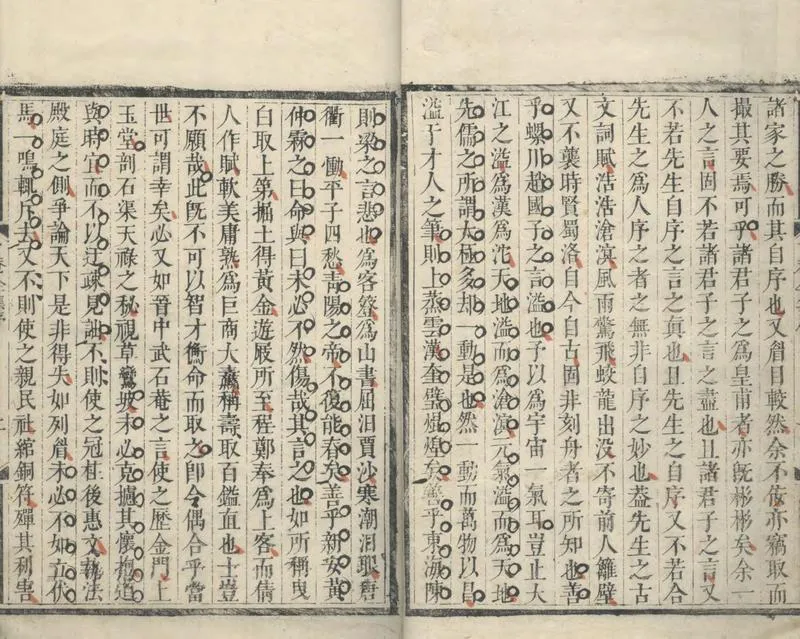 諸家之勝而其自序也又眉目較然余不佞亦竊取而
撮其要焉可乎諸君子之為皇甫者亦既彬彬矣余一
人之言固不若諸君子之言之盡也且諸君子之言又
不若先生自序之言之真也且先生之自序又不若合
先生之為人序之者之無非自序之妙也葢先生之古
文詞賦浩浩滄溟風雨驚飛蛟龍出没不寄前人籬壁
又不襲時賢蜀洛自今自古固非刻舟者之所知也善
乎螺川趙國子之言溢也予以為宇宙一氣耳豈止大
江之溢為漢為沱天地溢而為滄溟元氣溢而為天地
先儒之所謂太極多却一動是也然一動而萬物以昌
溢于才人之筆則上蒸雲漢奎璧煌煌矣善乎東湖陳
則梁之言悲也為客簦為山書屈汨賈沙寒潮淚聚唐
衢一慟平子四愁青陽之帝不復能春矣善乎新安黃
仲霖之曰命與曰未必不然傷哉其言之也如所稱曳
白取上第掘土得黃金遊屐所至程鄭奉為上客而倩
人作賦軟美庸熟為巨商大蠹稱壽取百鎰直也士豈
不願哉此既不可以智才衡命而取之即令偶合乎當
世可謂幸矣必又如晉中武石菴之言使之歷金門上
玉堂剖石渠天祿之秘視草鸞坡未必克攄其懷抱道
與時宜而不以迂疎見詘不則使之冠柱後惠文執法
殿庭之側爭論天下是非得失如列眉未必不如立仗
馬一鳴輒斥去又不則使之親民社綰銅符殫其利害